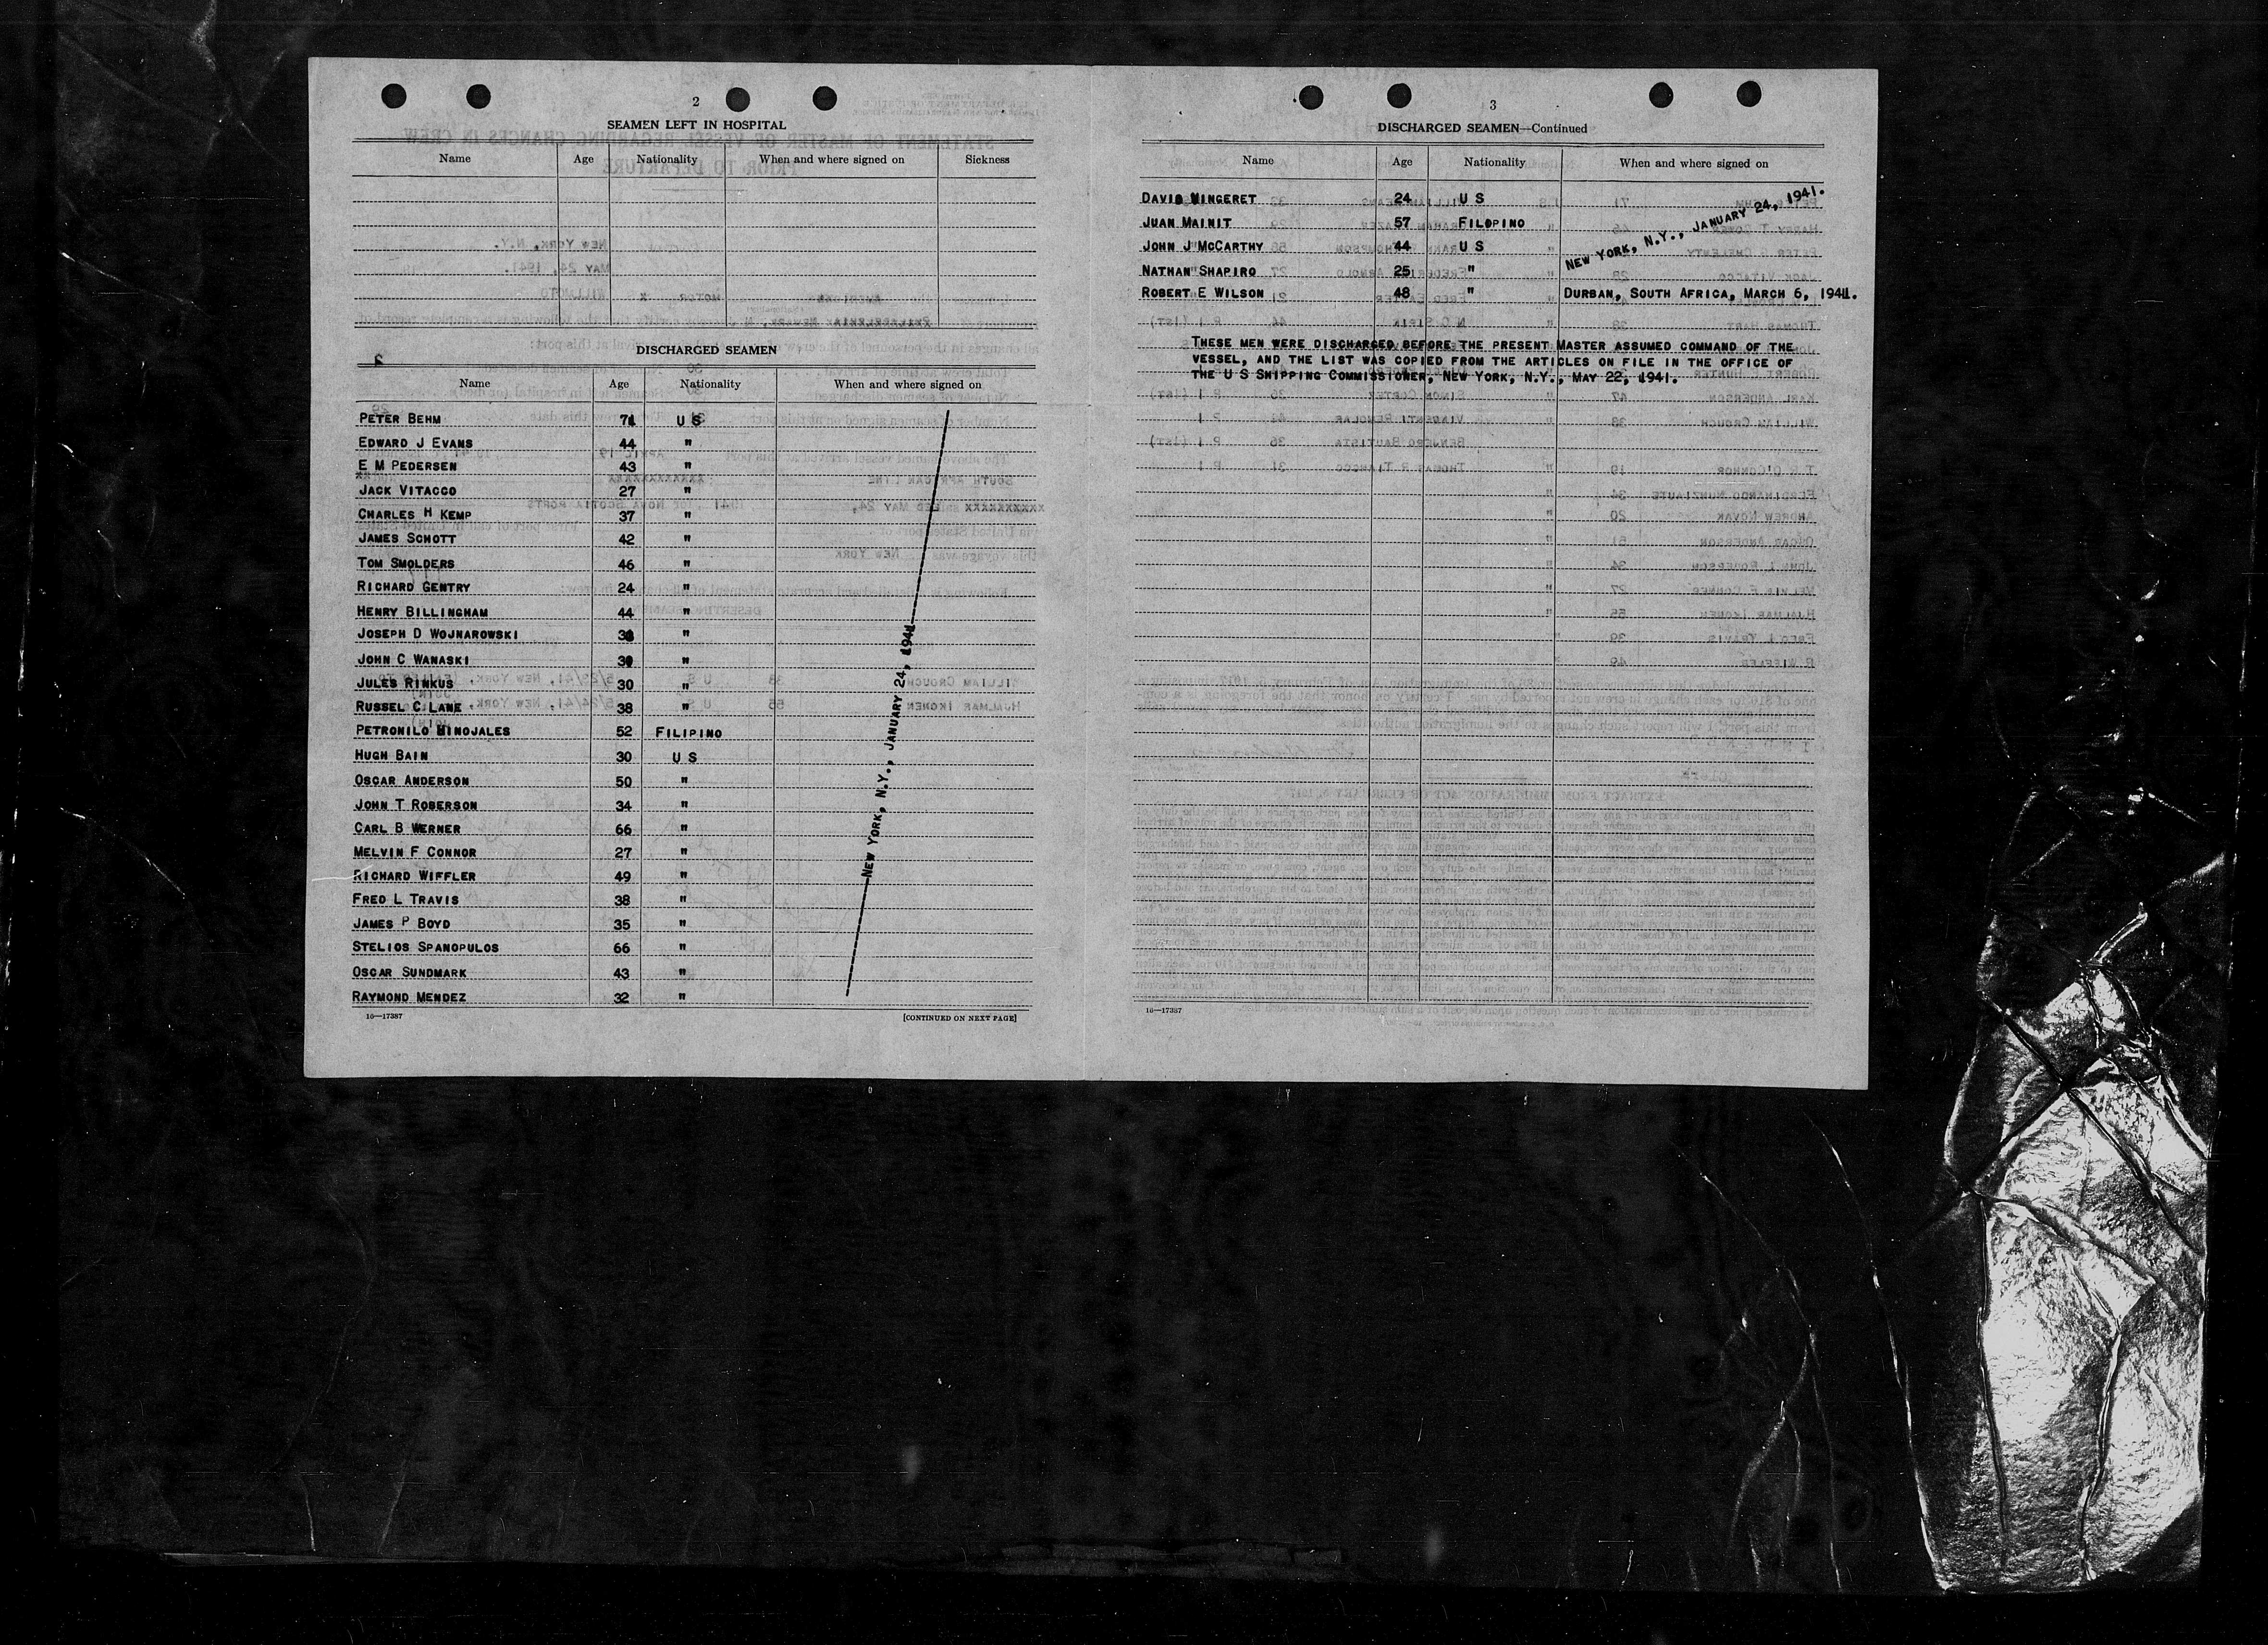 2
SEAMEN LEFT IN HOSPITAL
Name Age Nationality When and where signed on Sickness
DISCHARGED SEAMEN
Name Age Nationality When and where signed on
PETER BEHM 71 U S
EDWARD J EVANS 44 "
E M PEDERSEN 43 "
JACK VITACCO 27 "
CHARLES H KEMP 37 "
JAMES SCHOTT 42 "
TOM SMOLDERS 46 "
RICHARD GENTRY 24 "
HENRY BILLINGHAM 44 "
JOSEPH D WOJNAROWSKI "
JOHN C WANASKI "
JULES RINKUS 30 "
RUSSEL C LANE 38 "
PETRONILO MINOJALES 52 FILIPINO
HUGH BAIN 30 U S
OSCAR ANDERSON 50 "
JOHN T ROBERSON 34 "
CARL B WERNER 66 "
MELVIN F CONNOR 27 "
RICHARD WIFFLER 49 "
FRED L TRAVIS 38 "
JAMES P BOYD 35 "
STELIOS SPANOPULOS 66 "
OSCAR SUNDMARK 43 "
RAYMOND MENDEZ 32 "
NEW YORK, N.Y., JANUARY 24, 1941
16—17387 [CONTINUED ON NEXT PAGE]
3
DISCHARGED SEAMEN—Continued
Name Age Nationality When and where signed on
DAVID MINGERET 24 U S
JUAN MAINIT 57 FILOPINO
JOHN J MCCARTHY 44 U S
NATHAN SHAPIRO 25 "
NEW YORK, N.Y., JANUARY 24, 1941.
ROBERT E WILSON 48 " DURBAN, SOUTH AFRICA, MARCH 6, 1941.
THESE MEN WERE DISCHARGED BEFORE THE PRESENT MASTER ASSUMED COMMAND OF THE
VESSEL, AND THE LIST WAS COPIED FROM THE ARTICLES ON FILE IN THE OFFICE OF
THE U S SHIPPING COMMISSIONER, NEW YORK, N.Y., MAY 22, 1941.
16—17387